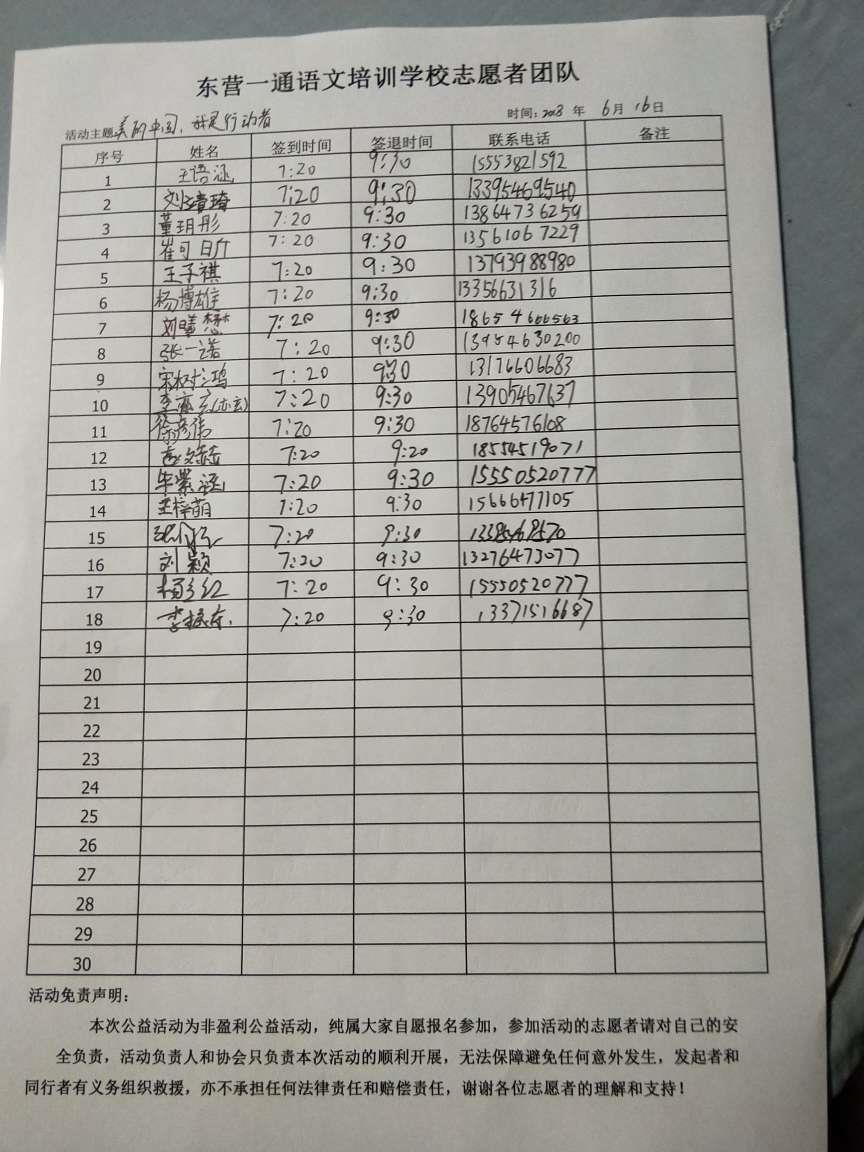 东营一通语文培训学校志愿者团队
活动主题 美丽中国，我是行动者 时间：2018 年 6月 16日
序号 姓名 签到时间 签退时间 联系电话 备注
1 王语涵 7:20 9:30 15553821592
2 7:20 9:30 13395469540
3 董玥彤 7:20 9:30 13864736259
4 崔可 7:20 9:30 13561067229
5 王子祺 7:20 9:30 13793988980
6 杨博雄 7:20 9:30 13356631316
7 7:20 9:30
8 张一诺 7:20 9:30 13954630200
9 7:20 9:30 13176606683
10 7:20 9:30 13905467637
11 7:20 9:30 18764576108
12 7:20 9:20 18554519071
13 毕紫涵 7:20 9:30 15550520777
14 王梓萌 7:20 9:30
15 7:20 9:30
16 刘颖 7:20 9:30 13276473077
17 7:20 9:30 15550520777
18 7:20 9:30 13371516687
19
20
21
22
23
24
25
26
27
28
29
30
活动免责声明：
本次公益活动为非盈利公益活动，纯属大家自愿报名参加，参加活动的志愿者请对自己的安
全负责，活动负责人和协会只负责本次活动的顺利开展，无法保障避免任何意外发生，发起者和
同行者有义务组织救援，亦不承担任何法律责任和赔偿责任，谢谢各位志愿者的理解和支持！